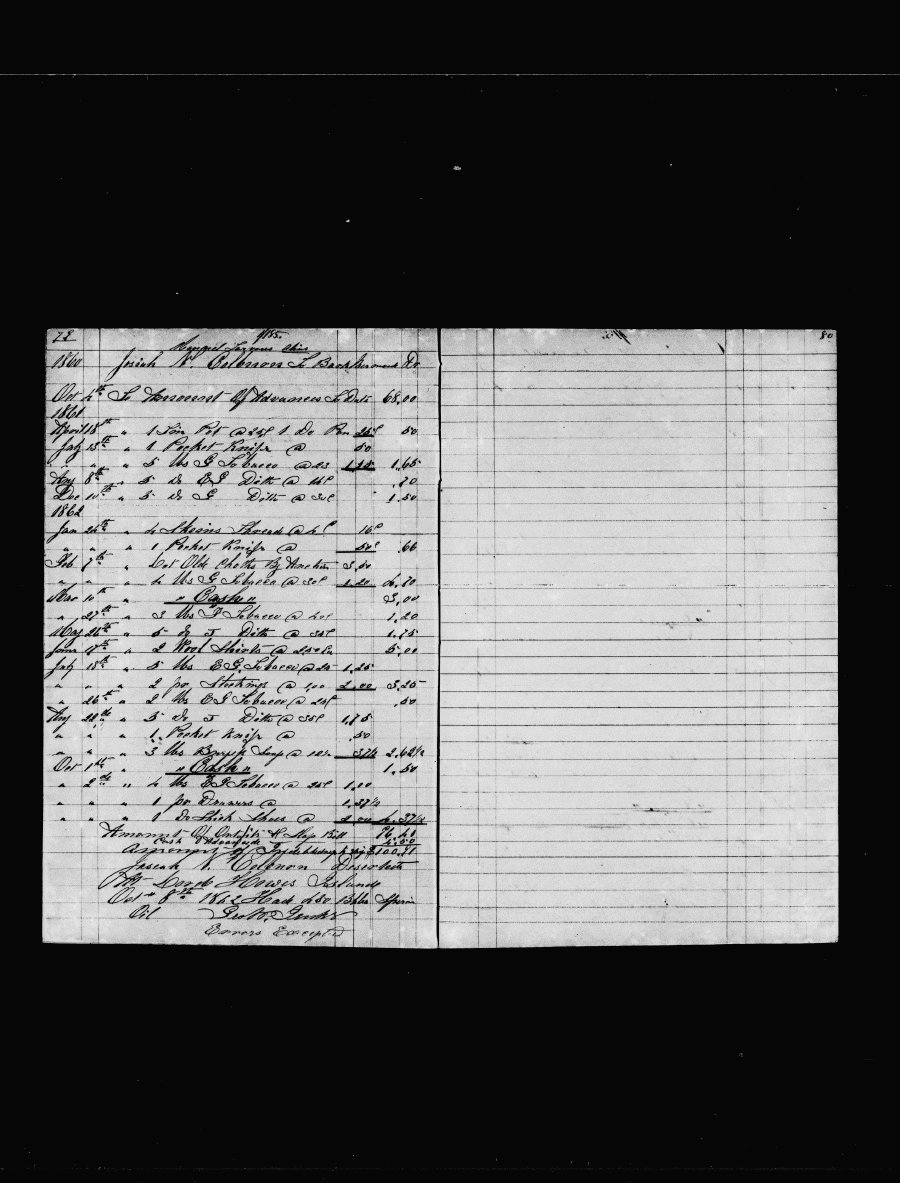 1860 Josiah N. To Bark Dr
Oct 4th To Amount Of Advances To Date 68.00
1861
April 18th " 1 Tin Pot @ 25¢ 1 Do Pan 25¢ 50
July 15th " 1 Pocket Knife @ 50
" " " 5 lbs G Tobacco @ 23 1.15 1.65
Aug 8th " 5 Do E G Ditto @ .70
Dec 10th " 5 Do G Ditto @ 30¢ 1.50
1862
Jan 24th " 4 Skeins Thread @ 4¢ 16¢
" " " 1 Pocket Knife @ 50¢ .66
Feb 7th " Lot Old Cloths By Auction
" " " 4 lbs G Tobacco @ 30¢ 1.20 4.70
Mar 10th " " Cash " 3.00
" 27th " 3 lbs Tobacco @ 40¢ 1.20
May 24th " 5 do J Ditto @ 35¢ 1.75
June 17th " 2 Wool Shirts @ 250 Ea 5.00
July 15th " 5 lbs E G. Tobacco @ 25 1.25
" " " 2 pr Stockings @ 1.00 2.00 3.25
" 26th " 2 lbs E G Tobacco @ 25¢ .50
Aug 22d " 5 Do J Ditto @ 35¢ 1.75
" " " 1 Pocket Knife @ .50
" " " 3 lbs Soap @ 12½ 37½ 2.62½
Oct 1st " " Cash " 1.50
" 2d " 4 lbs E G Tobacco @ 25¢ 1.00
" " " 1 pr Drawers @ 1.37½
" " " 1 Do Thick Shoes @ 2.00 4.37½
Amount Of Outfits Bill
Cash Advanced
Amount of Indebtedness to Ship
Josiah N. Deserted
At Lord Howes Islands
Oct 8th 1862 Had 450 Bbls Sperm
Oil
Errors Excepted
80